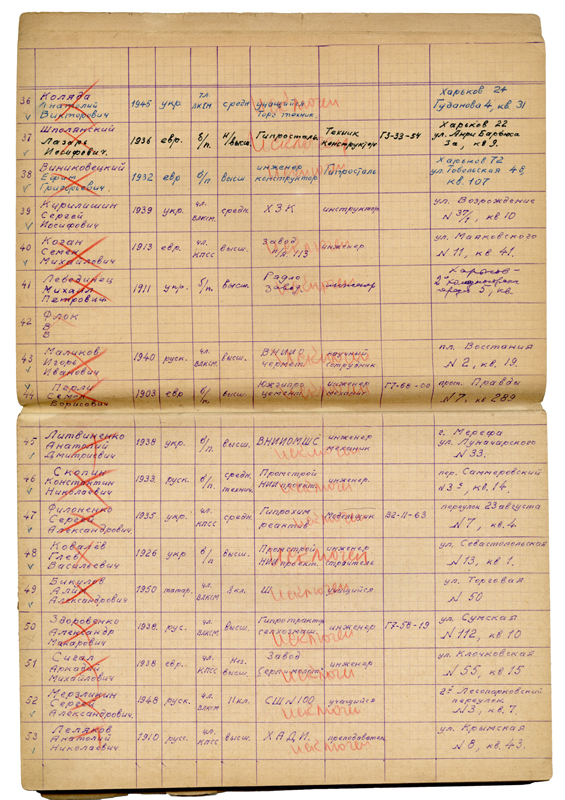 36 Коляда Анатолий Викторович 1945 укр. чл. ЛКСМ средн учащийся Торг. техник. Харьков 24 Гуданова 4, кв. 31 исключен
37 Шполянский Лазарь Иосифович. 1936 евр. б/п. н/высш. Гипросталь Техник конструктор Г3-33-54 Харьков 22 ул. Анри Барбюса 3а, кв 9. исключен
38 Виниковецкий Ефим Григорьевич. 1932 евр б/п высш инженер конструктор Гипросталь Харьков 72 кв. 107 исключен
39 Кирилашин Сергей Иосифович 1939 укр. чл. ВЛКСМ. средн. ХЭК инструктор ул. Возрождение N 37/1, кв 10
40 Коган Семен Михайлович 1913 евр. чл. КПСС высш. Завод п/я 113 инженер ул. Маяковского N 11, кв 41. исключен
41 Лебединец Михаил Петрович 1911 укр. б/п. высш. Радио Завод. инженер 5, кв. исключен
42 Флок В В
43 Маликов Игорь Иванович 1940 руск. чл. высш. ВНИИО чермет. научный сотрудник пл. Восстания N 2, кв. 19. исключен
44 Перли Семен Борисович 1903 евр б/п высш. Южгипро цемент инженер механик Г7-68-00 просп. Правды N 7, кв 289 исключен
45 Литвиненко Анатолий Дмитриевич 1938 укр. б/п высш. ВНИИОМШС инженер механик г. Мерефа ул. Луначарского N 33. исключен
46 Скопин Константин Николаевич 1933. руск. б/п. средн. техник. Промстрой НИИпроект. инженер. пер. Саммеровский кв. 14. исключен
47 Филоненко Сергей Александрович. 1935 укр. чл. КПСС средн. Гипрохим реактив 92-11-63 переулок 23 августа N 7, кв. 4. исключен
48 Ковалёв Глеб Васильевич 1926 укр б/п высш. Промстрой НИИпроект. инженер строитель ул. Севастопольская N 13, кв 1. исключен
49 Бикулов Али Александрович 1950 татар. чл. ВЛКСМ 8 кл. Ш. учащийся ул. Торговая N 50 исключен
50 Здоровенко Александр Макарович 1938. рус. чл. ВЛКСМ высш. Гипротракто сельхозмаш. инженер Г7-58-19 ул. Сумская N 112, кв 10 исключен
51 Сигал Аркадий Михайлович 1938 евр. чл. КПСС Нез. высш. Завод Серп и молот. инженер ул. Клочковская N 55, кв 15 исключен
52 Мерзликин Сергей Александрович. 1948 руск. чл. ВЛКСМ 11 кл. СШ N 100 учащийся 2й Лесопарковский переулок N 3, кв. 7. исключен
53 Пеляков Анатолий Николаевич 1910 русс. чл. КПСС высш. ХАДИ. преподаватель ул. Крымская N 8, кв. 43. исключен